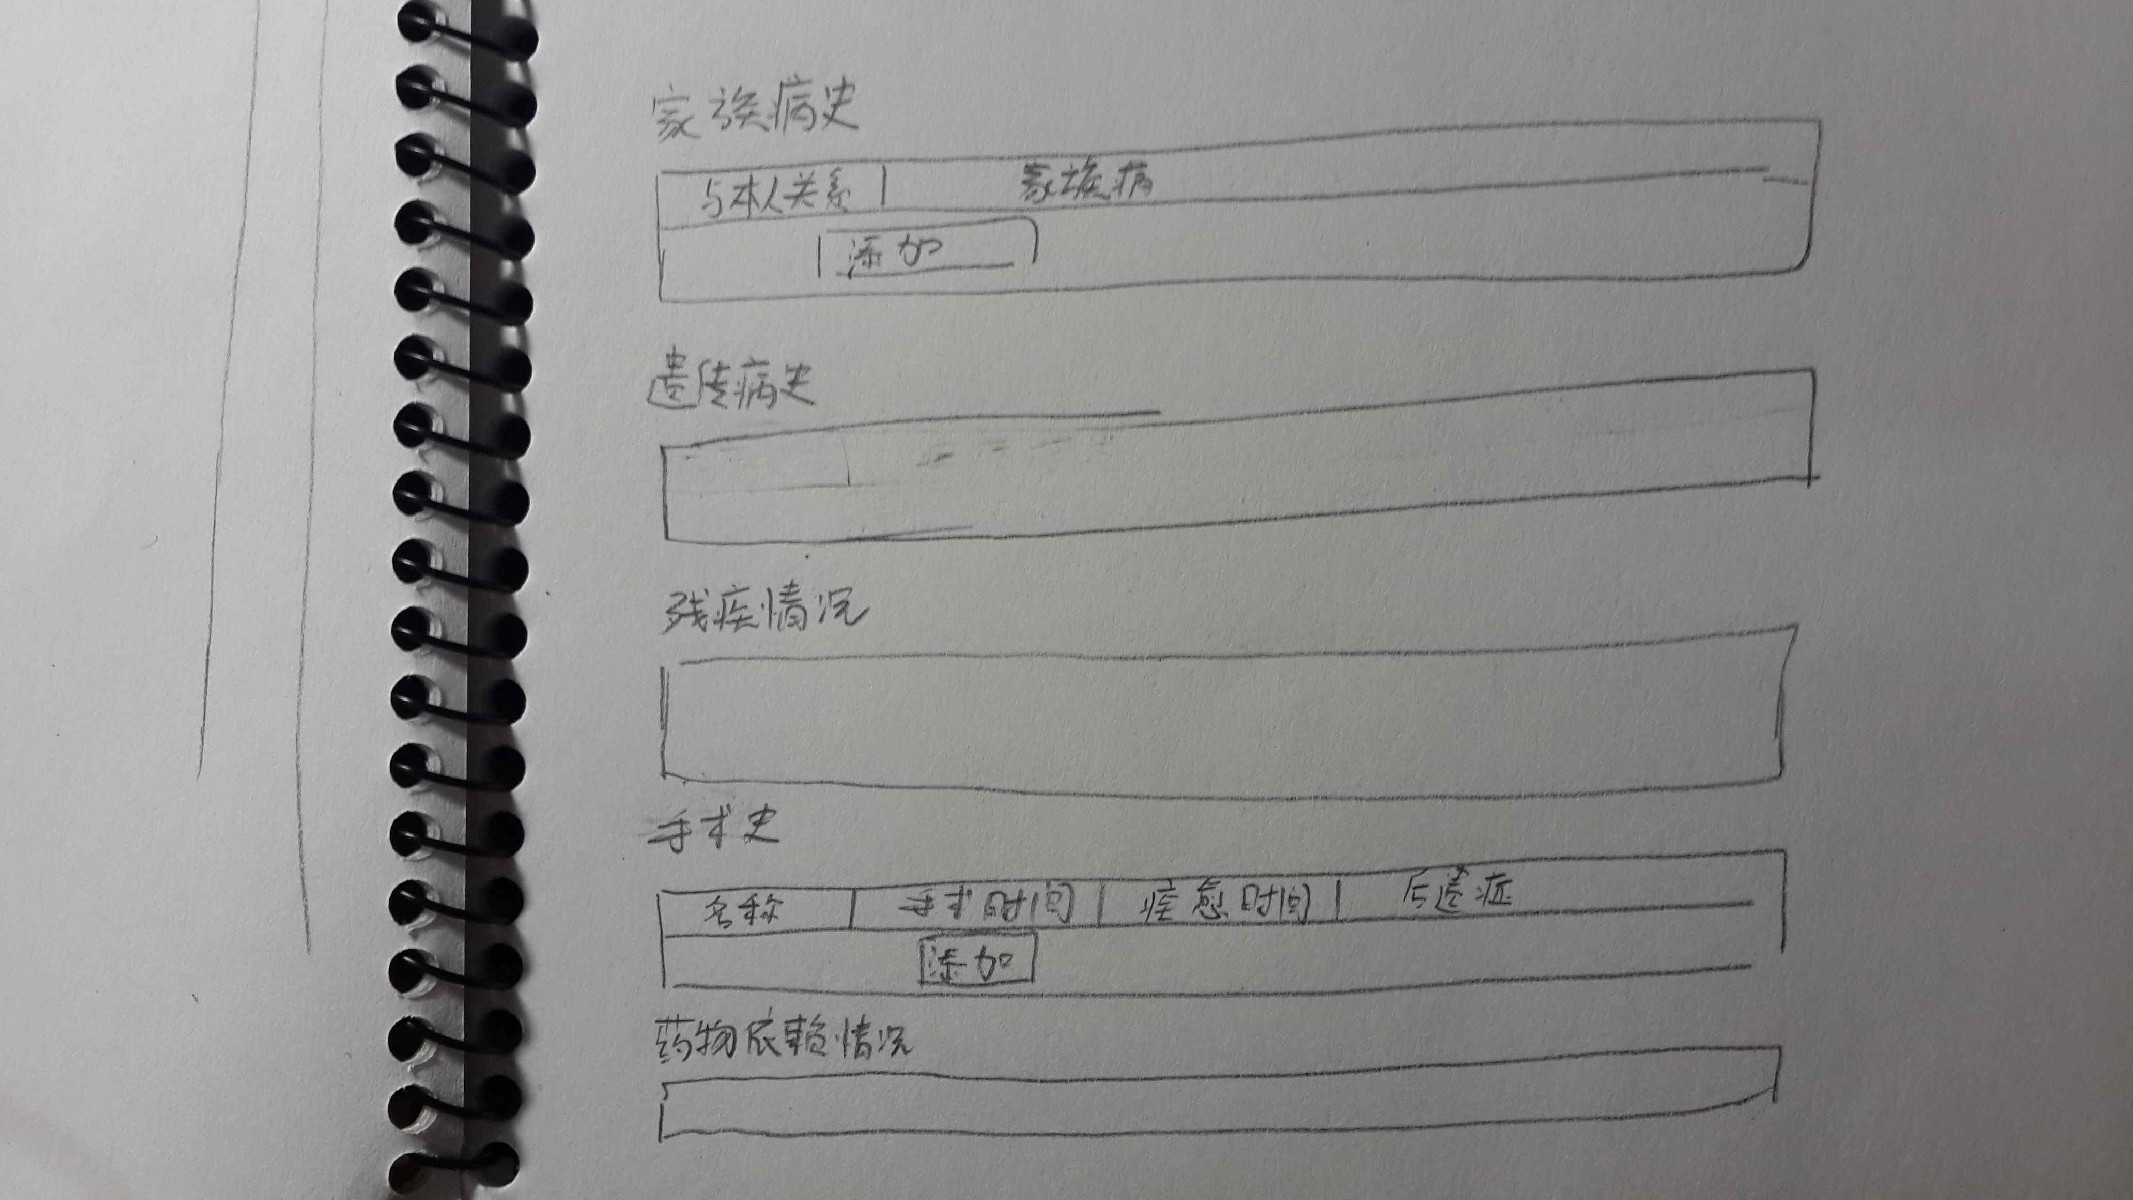 家族病史
与本人关系 家族病
添加
遗传病史
残疾情况
手术史
名称 手术时间 痊愈时间 后遗症
添加
药物依赖情况